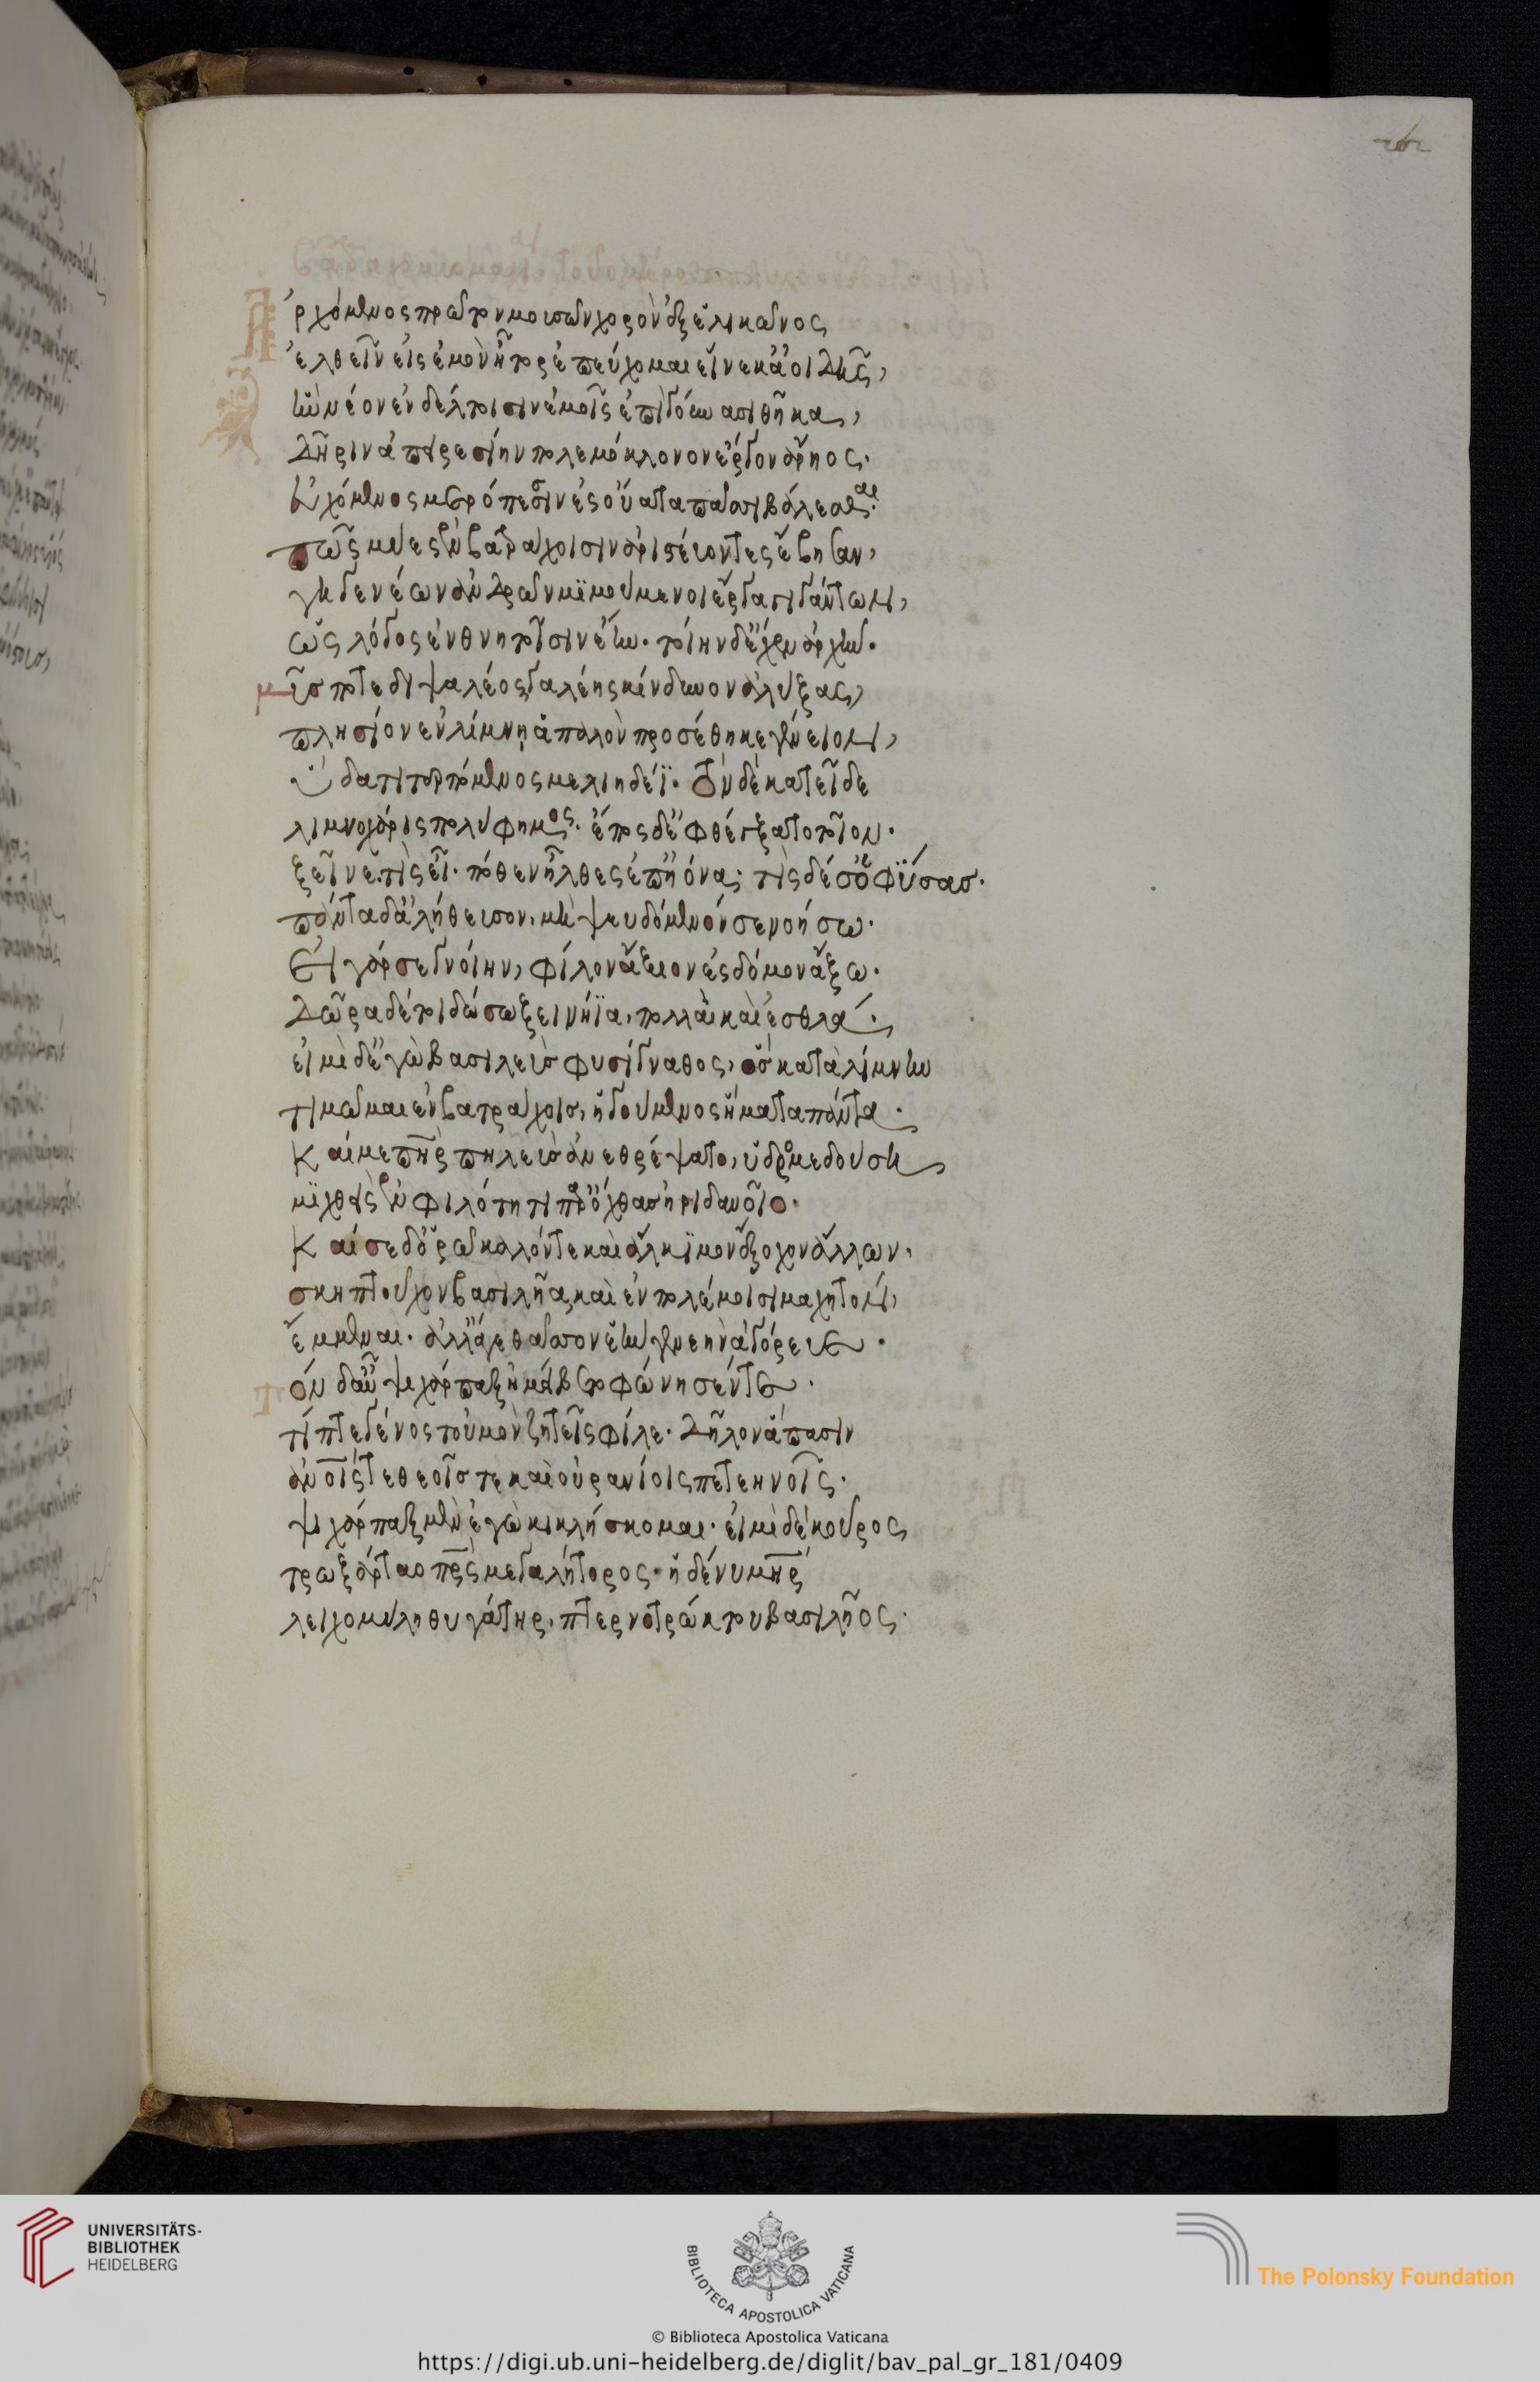 Ἀρχόμενος πρῶτον μουσῶν χορὸν ἐξ ἑλικῶνος
ἐλθεῖν εἰς ἐμὸν ἦτορ ἐπεύχομαι εἵνεκ' ἀοιδῆς,
ἣν νέον ἐν δέλτοισιν ἐμοῖς ἐπὶ γούνασι θῆκα,
δῆριν ἀπειρεσίην πολεμόκλονον ἔργον ἄρηος.
εὐχόμενος μερόπεσσιν ἐς οὔατα πᾶσι βαλέσθαι.
πῶς μύες ἐν βατράχοισιν ἀριστεύοντες ἔβησαν,
γηγενέων ἀνδρῶν μιμούμενοι ἔργα γιγάντων,
ὡς λόγος ἐν θνητοῖσιν ἔην. τοίην δ' ἔχεν ἀρχήν.
μῦς ποτε διψαλέος γαλέης κίνδυνον ἀλύξας,
πλησίον ἐν λίμνῃ ἁπαλὸν προσέθηκε γένειον,
ὕδατι τερπόμενος μελιηδέϊ. τὸν δὲ κατεῖδε
λιμνόχαρις πολύφημος. ἔπος δ' ἐφθέγξατο τοῖον.
ξεῖνε τίς εἶ. πόθεν ἦλθες ἐπ' ἠόνα; τίς δέ σ' ὁ φύσας.
πάντα δ' ἀλήθευσον. μὴ ψευδόμενόν σε νοήσω.
Εἰ γάρ σε γνοίην, φίλον ἄξιον ἐς δόμον ἄξω.
δῶρα δέ τοι δώσω ξεινήϊα, πολλὰ καὶ ἐσθλά.
εἰμὶ δ' ἐγὼ βασιλεὺς φυσίγναθος, ὃς κατὰ λίμνην
τιμῶμαι ἐν βατράχοις, ἡγούμενος ἤματα πάντα.
Καί με πηρ πηλεὺς ἀνεθρέψατο, ὑδρομεδούσῃ
μιχθεὶς ἐν φιλότητι παρ' ὄχθας ἠριδανοῖο.
Καὶ σὲ δ' ὁρῶ καλόν τε καὶ ἄλκιμον ἔξοχον ἄλλων.
σκηπτοῦχον βασιλῆα, καὶ ἐν πολέμοισι μαχητὴν,
ἔμμεναι. ἀλλ' ἄγε θᾶσσον ἑὴν γενεὴν ἀγόρευε.
Τὸν δ' αὖ ψιχάρπαξ ἠμείβετο φώνησέν τε.
τίπτε γένος τοὐμὸν ζητεῖς φίλε. δῆλον ἅπασιν
ἀνοῖς τε θεοῖς τε καὶ οὐρανίοις πετεηνοῖς.
ψιχάρπαξ μὲν ἐγὼ κικλήσκομαι. εἰμὶ δὲ κοῦρος
τρωξάρταο πρς μεγαλήτορος. ἡ δέ νυ μηρ
λειχομύλη θυγάτηρ, πτερνοτρώκτου βασιλῆος.
UNIVERSITÄTS-
BIBLIOTHEK
HEIDELBERG
BIBLIOTECA APOSTOLICA VATICANA
The Polonsky Foundation
© Biblioteca Apostolica Vaticana
https://digi.ub.uni-heidelberg.de/diglit/bav_pal_gr_181/0409